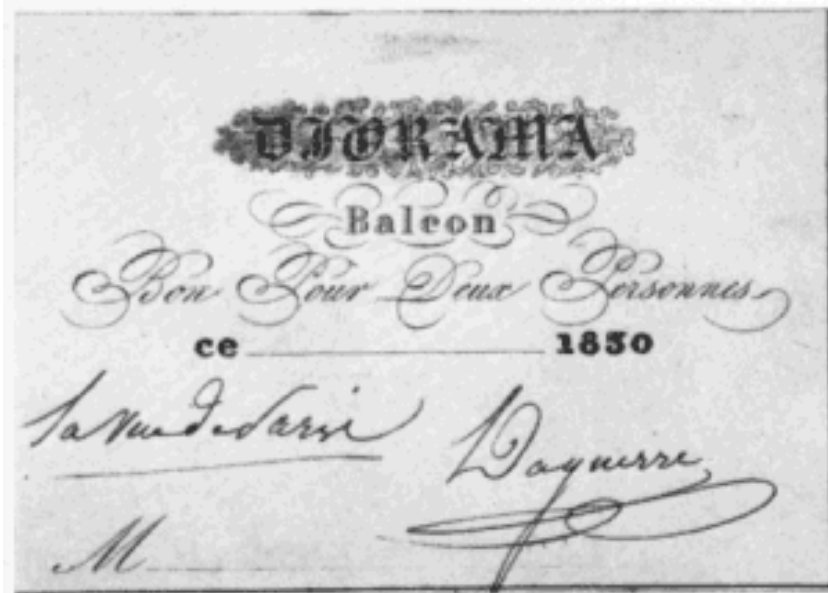 DIORAMA
Balcon
Bon Pour Deux Personnes
ce 1830
la Vue de Paris
Daguerre
M